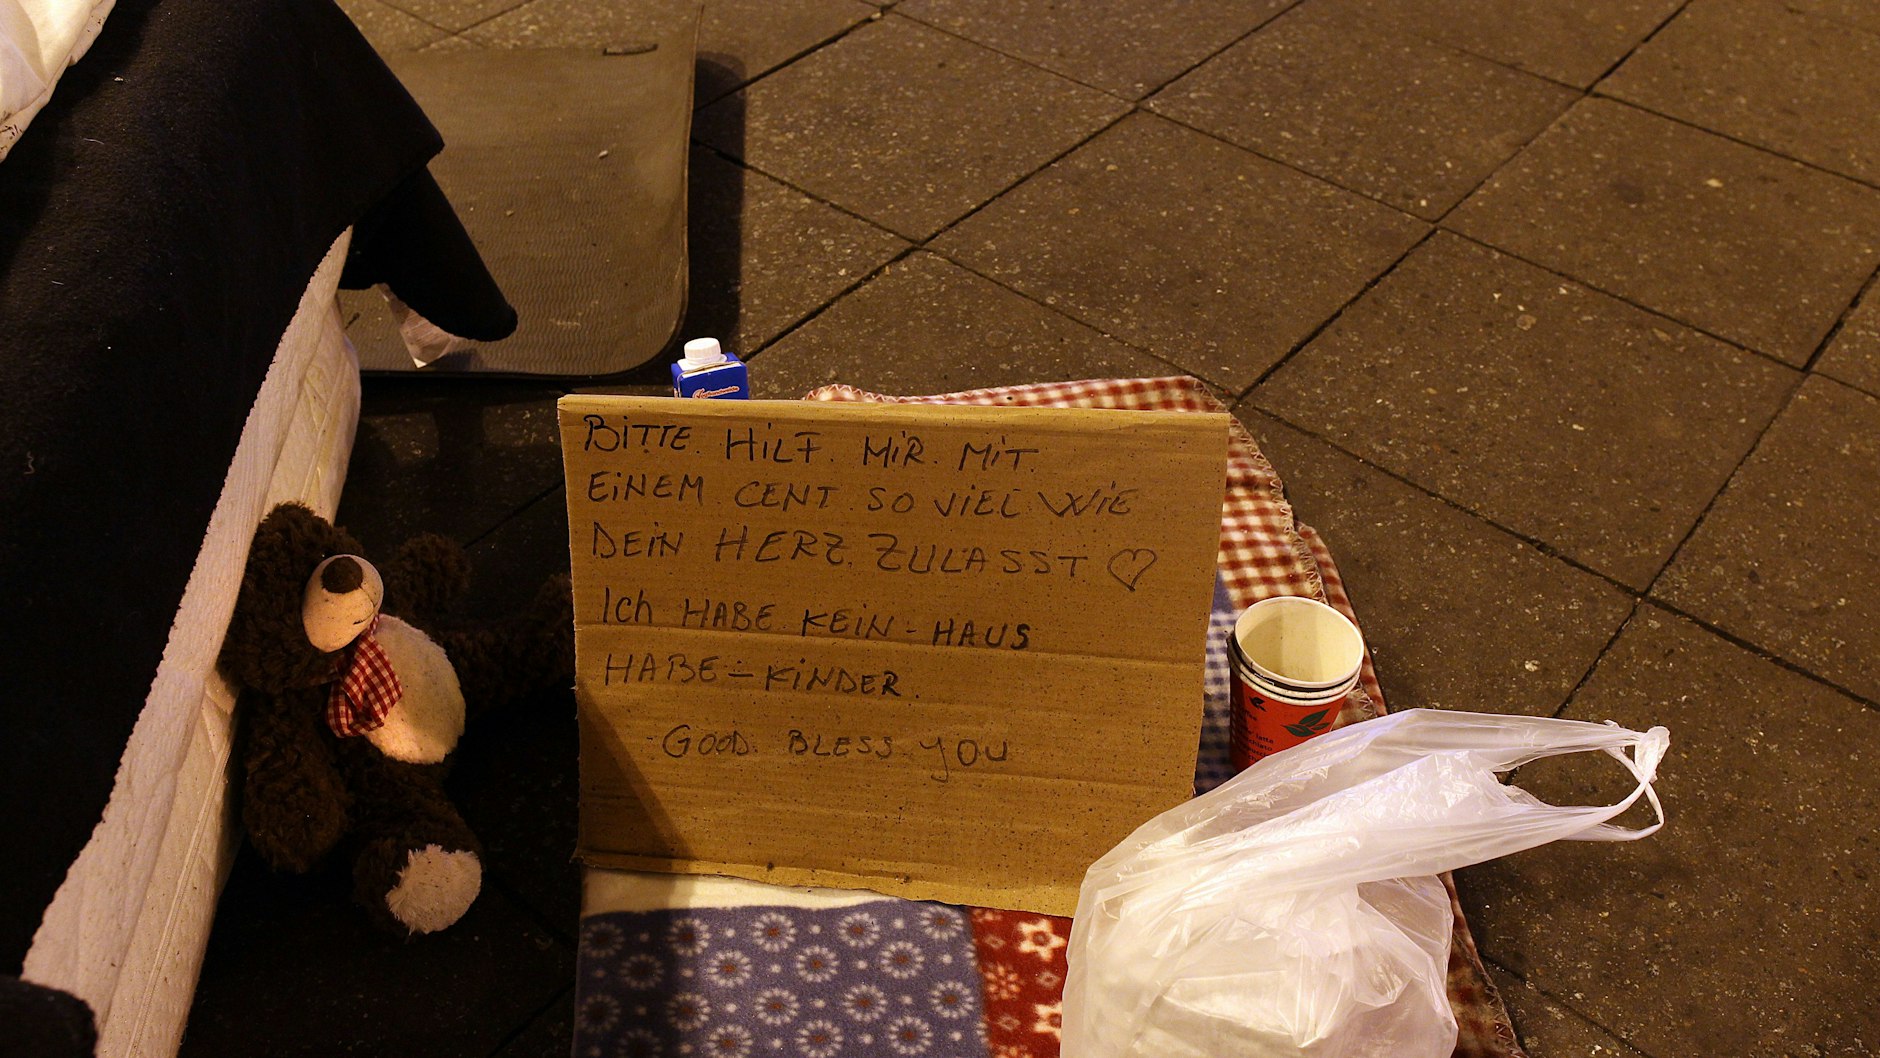 BITTE. HILF. MIR. MIT.
EINEM. CENT. SO VIEL. WIE
DEIN HERZ. ZULASST. ♡
Ich HABE. KEIN - HAUS
HABE - KINDER.
GOOD. BLESS. YOU
latte